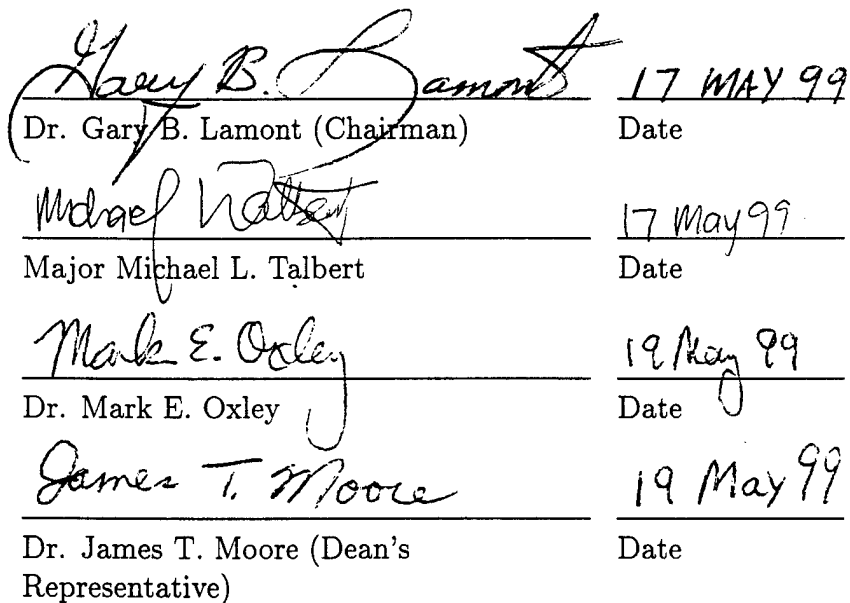 Gary B. Lamont 17 MAY 99
Dr. Gary B. Lamont (Chairman) Date
Michael Talbert 17 May 99
Major Michael L. Talbert Date
Mark E. Oxley 19 May 99
Dr. Mark E. Oxley Date
James T. Moore 19 May 99
Dr. James T. Moore (Dean's Date
Representative)